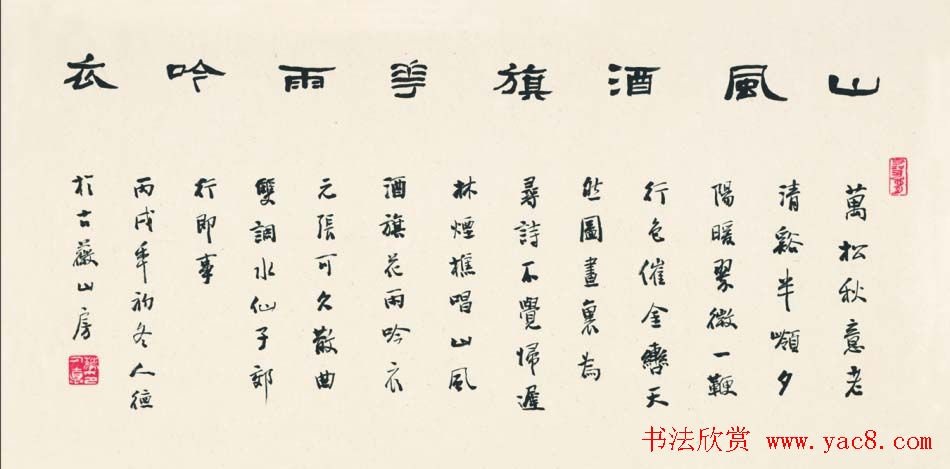 山風酒旗華雨吟衣
萬松秋意老
清谿半嶺夕
陽暖翠微一鞭
行色催金轡天
然圖畫裏為
尋詩不覺歸遲
林煙樵唱山風
酒旗花雨吟衣
元張可久散曲
雙調水仙子郊
行即事
丙戌年初冬人德
於古嚴山房
书法欣赏 www.yac8.com